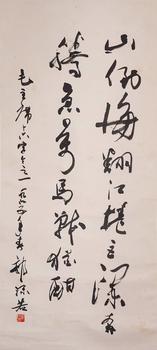 山倒海翻江捲巨瀾奔
騰急萬馬戰猶酣
毛主席十六字令之一 郭沫若